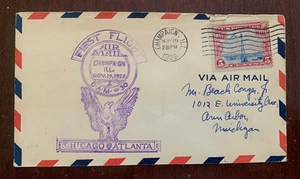 FIRST FLIGHT
AIR
MAIL
CHAMPAIGN
ILL.
C.A.M. - 30
CHICAGO ATLANTA
CHAMPAIGN, ILL.
1928
5 5
VIA AIR MAIL
Mr. Beach Conger, Jr.
1012 E. University Ave.
Ann Arbor,
Michigan